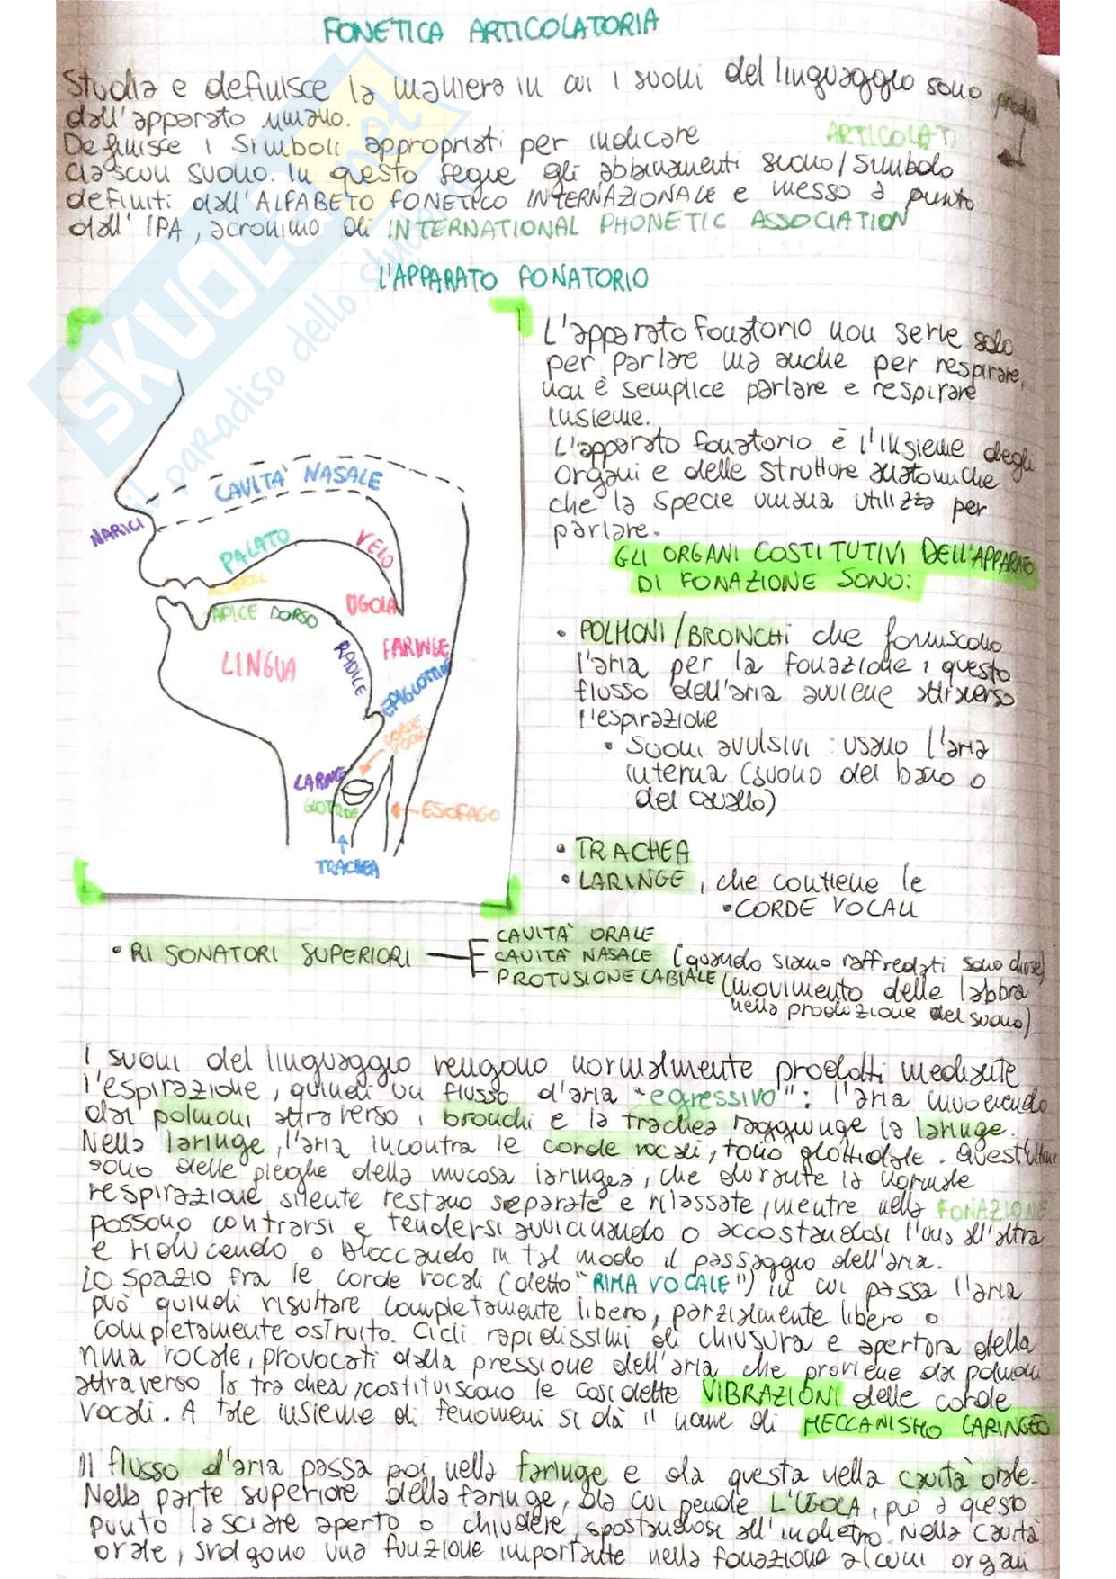 FONETICA ARTICOLATORIA
Studia e definisce la maniera in cui i suoni del linguaggio sono prodotti
dall'apparato umano.
ARTICOLATI
Definisce i simboli appropriati per indicare
ciascun suono. In questo segue gli abbinamenti suono/simbolo
definiti dall'ALFABETO FONETICO INTERNAZIONALE e messo a punto
dall'IPA, acronimo di INTERNATIONAL PHONETIC ASSOCIATION
SKUOLA.net
il paradiso dello studente
L'APPARATO FONATORIO
CAVITA' NASALE
NARICI
PALATO
VELO
APICE DORSO
UGOLA
LINGUA
RADICE
FARINGE
EPIGLOTTIDE
CORDE VOCALI
LARINGE
GLOTTIDE
ESOFAGO
TRACHEA
L'apparato fonatorio non serve solo
per parlare ma anche per respirare,
non è semplice parlare e respirare
insieme.
L'apparato fonatorio è l'insieme degli
organi e delle strutture anatomiche
che la specie umana utilizza per
parlare.
GLI ORGANI COSTITUTIVI DELL'APPARATO
DI FONAZIONE SONO:
• POLMONI/BRONCHI che forniscono
l'aria per la fonazione, questo
flusso dell'aria avviene attraverso
l'espirazione
• Suoni avulsivi: usano l'aria
interna (suono del bacio o
del cavallo)
• TRACHEA
• LARINGE, che contiene le
• CORDE VOCALI
• RISONATORI SUPERIORI
CAVITA' ORALE
CAVITA' NASALE (quando siamo raffredati sono chiuse)
PROTUSIONE LABIALE (movimento delle labbra
nella produzione del suono)
I suoni del linguaggio vengono normalmente prodotti mediante
l'espirazione, quindi un flusso d'aria "egressivo": l'aria muovendo
dai polmoni attraverso i bronchi e la trachea raggiunge la laringe.
Nella laringe, l'aria incontra le corde vocali, tono glottidale. Quest'ultime
sono delle pieghe della mucosa laringea, che durante la normale
respirazione silente restano separate e rilassate, mentre nella FONAZIONE
possono contrarsi e tendersi avvicinando o accostandosi l'una all'altra
e riducendo o bloccando in tal modo il passaggio dell'aria.
Lo spazio fra le corde vocali (detto "RIMA VOCALE") in cui passa l'aria
può quindi risultare completamente libero, parzialmente libero o
completamente ostruito. Cicli rapidissimi di chiusura e apertura della
rima vocale, provocati dalla pressione dell'aria che proviene dai polmoni
attraverso la trachea, costituiscono le cosidette VIBRAZIONI delle corde
vocali. A tale insieme di fenomeni si dà il nome di MECCANISMO LARINGEO
Il flusso d'aria passa poi nella faringe e da questa nella cavità orale.
Nella parte superiore della faringe, da cui pende L'UGOLA, può a questo
punto lasciare aperto o chiudere, spostandosi all'indietro. Nella cavità
orale, svolgono una funzione importante nella fonazione alcuni organi